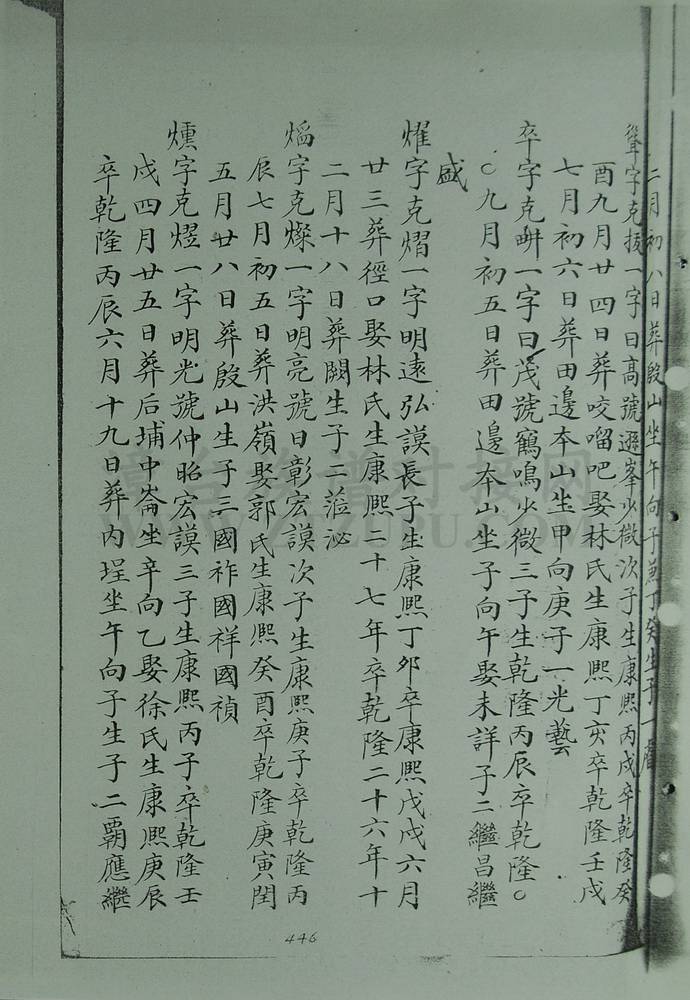 二月初八日葬殷山坐午向子兼丁癸生子一
字克拔一字日高號遜峯少微次子生康熙丙戌卒乾隆癸
酉九月廿四日葬咬嚼吧娶林氏生康熙丁亥卒乾隆壬戌
七月初六日葬田邊本山坐甲向庚子一光藝
卒字克畊一字曰茂號鶴鳴少微三子生乾隆丙辰卒乾隆○
○九月初五日葬田邊本山坐子向午娶未詳子二繼昌繼
盛
燿字克熠一字明遠弘謨長子生康熙丁卯卒康熙戊戌六月
廿三葬徑口娶林氏生康熙二十七年卒乾隆二十六年十
二月十八日葬闕生子二蒞泌
熖字克燦一字明亮號日彰宏謨次子生康熙庚子卒乾隆丙
辰七月初五日葬洪嶺娶郭氏生康熙癸酉卒乾隆庚寅閏
五月廿八日葬殷山生子三國祚國祥國禎
燻字克熤一字明光號仲昭宏謨三子生康熙丙子卒乾隆壬
戌四月廿五日葬后埔中崙坐辛向乙娶徐氏生康熙庚辰
卒乾隆丙辰六月十九日葬內埕坐午向子生子二霸應繼
446